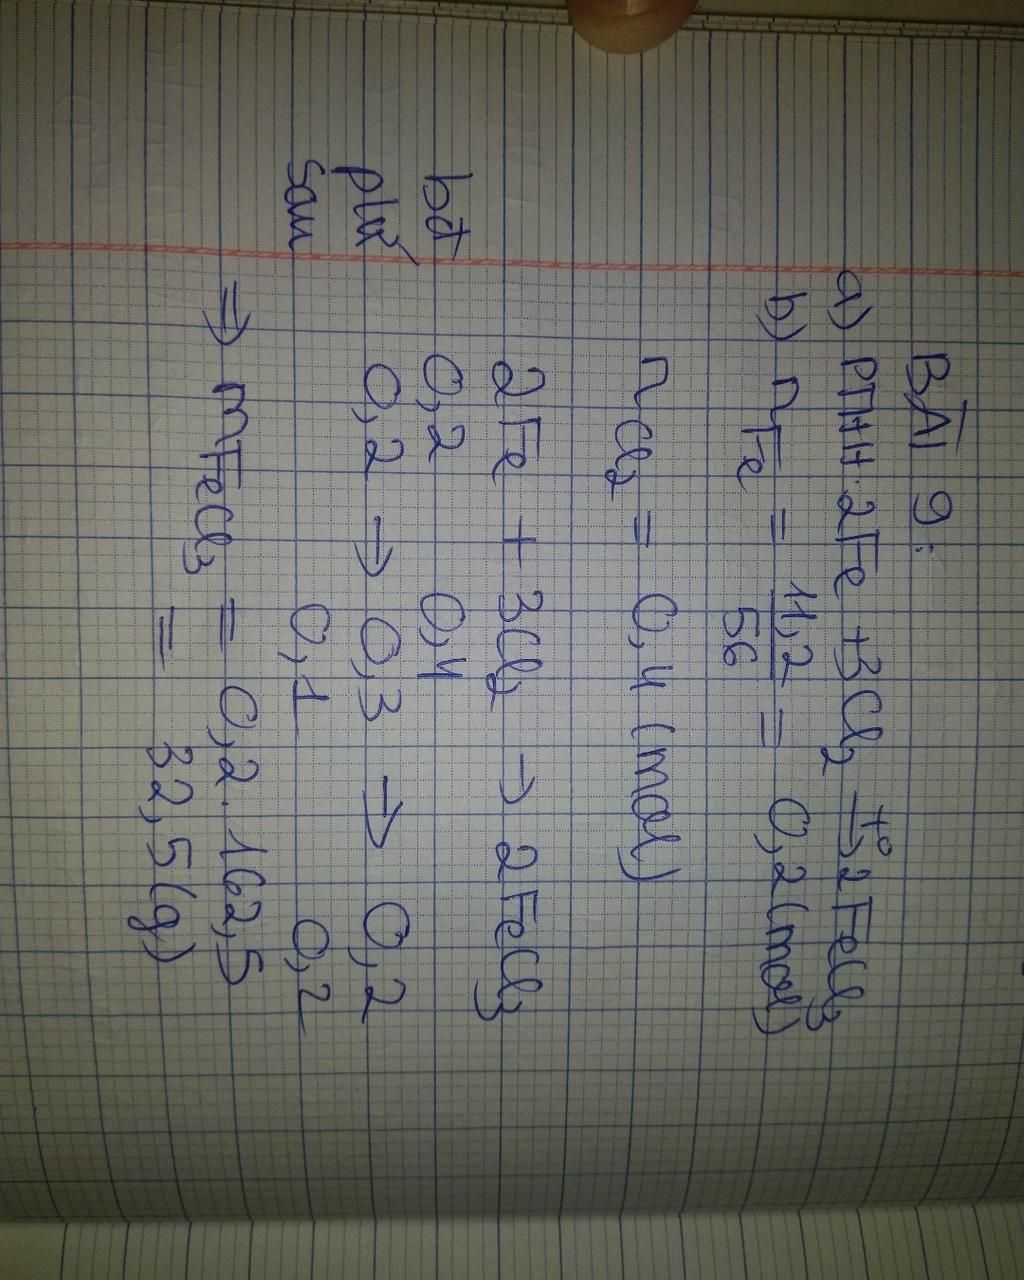 BÀI 9:
a) PTHH: 2Fe + 3Cl₂ →t° 2FeCl₃
b) nFe = 11,2/56 = 0,2 (mol)
nCl₂ = 0,4 (mol)
2Fe + 3Cl₂ → 2FeCl₃
bđ 0,2 0,4
phứ 0,2 → 0,3 → 0,2
sau 0,1 0,2
⇒ mFeCl₃ = 0,2 . 162,5
= 32,5 (g)